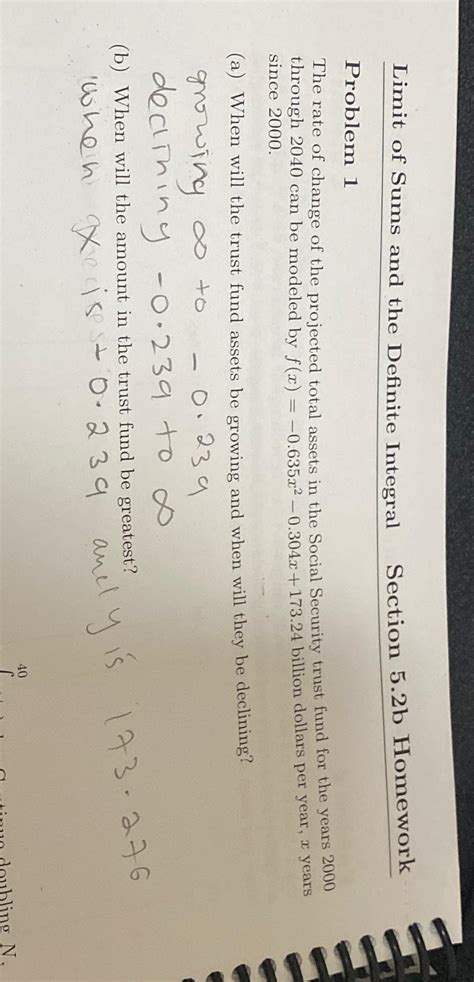 Limit of Sums and the Definite Integral Section 5.2b Homework
Problem 1
The rate of change of the projected total assets in the Social Security trust fund for the years 2000
through 2040 can be modeled by f(x) = −0.635x² − 0.304x + 173.24 billion dollars per year, x years
since 2000.
(a) When will the trust fund assets be growing and when will they be declining?
growing ∞ to -0.239
declining -0.239 to ∞
(b) When will the amount in the trust fund be greatest?
when x is -0.239 and y is 173.276
40
doubling N,